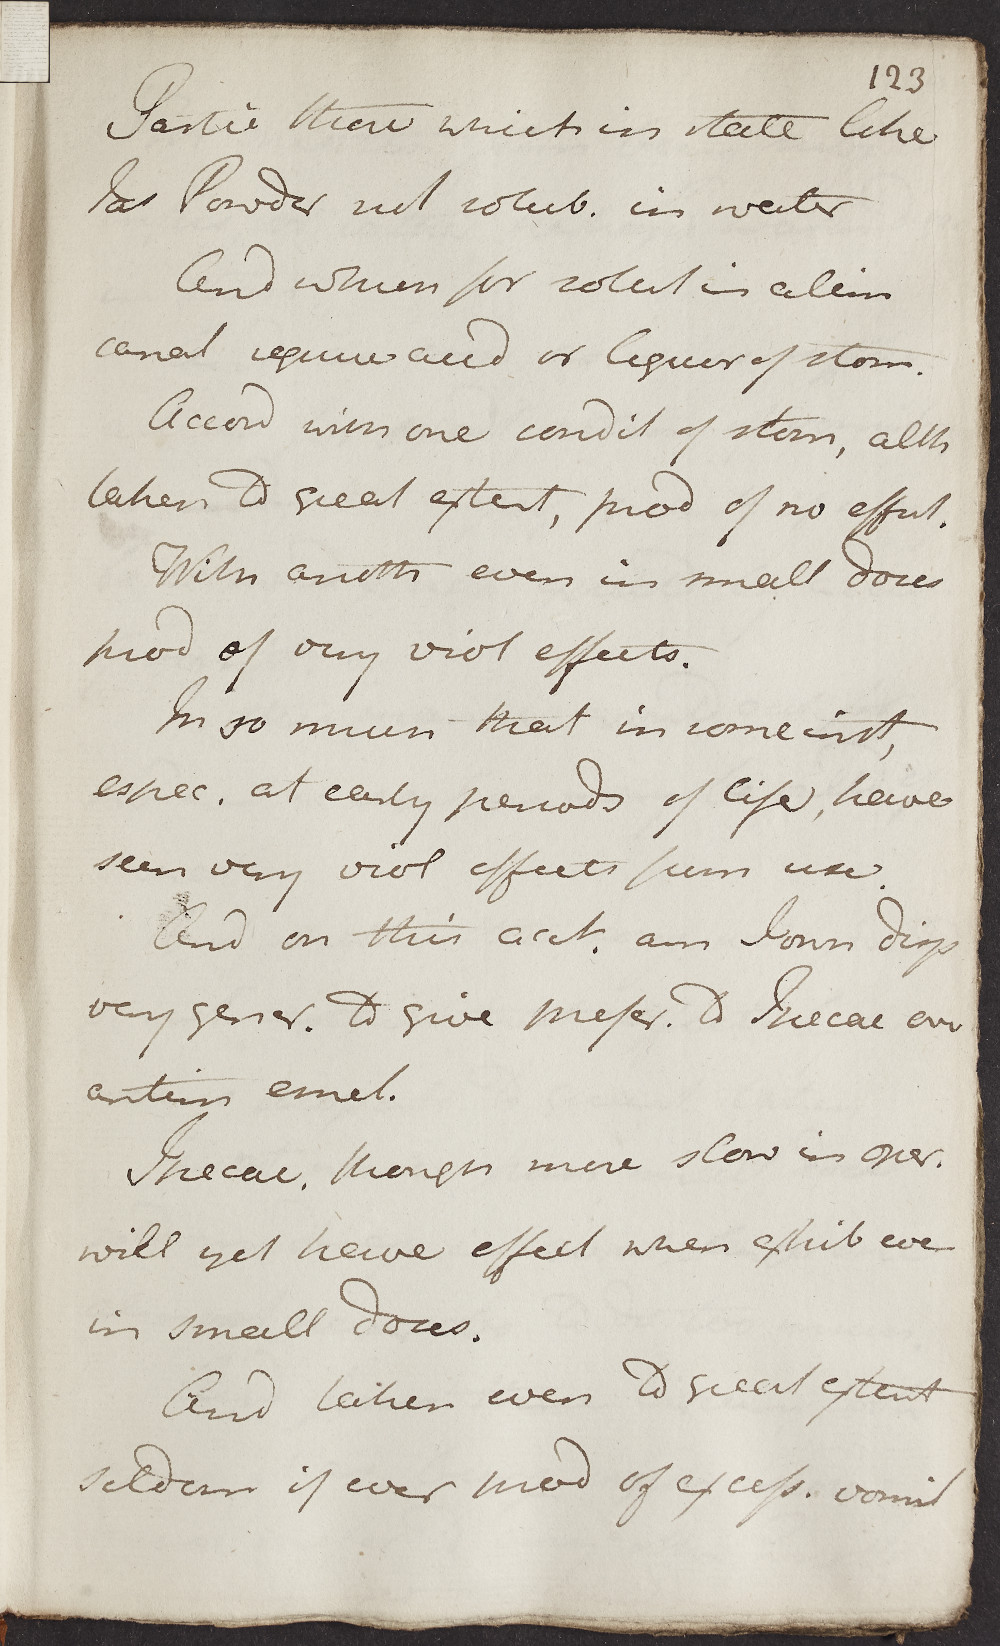 123
Partic those which in state like
Jas Powder not solub. in water
And when for solut in alim
canal require acid or liquor of stom.
Accord with one condit of stom, alth
taken to great extent, prod of no effect.
With anoth even in small doses
prod of very viol effects.
In so much that in some inst,
espec. at early periods of life, have
seen very viol effects from use.
And on this acct. am I own disp
very gener. to give prefer. to Ipecac over
antim emet.
Ipecac. though more slow in oper.
will yet have effect when exhib eve
in small doses.
And taken even to great extent
seldom if ever prod of excess. vomit